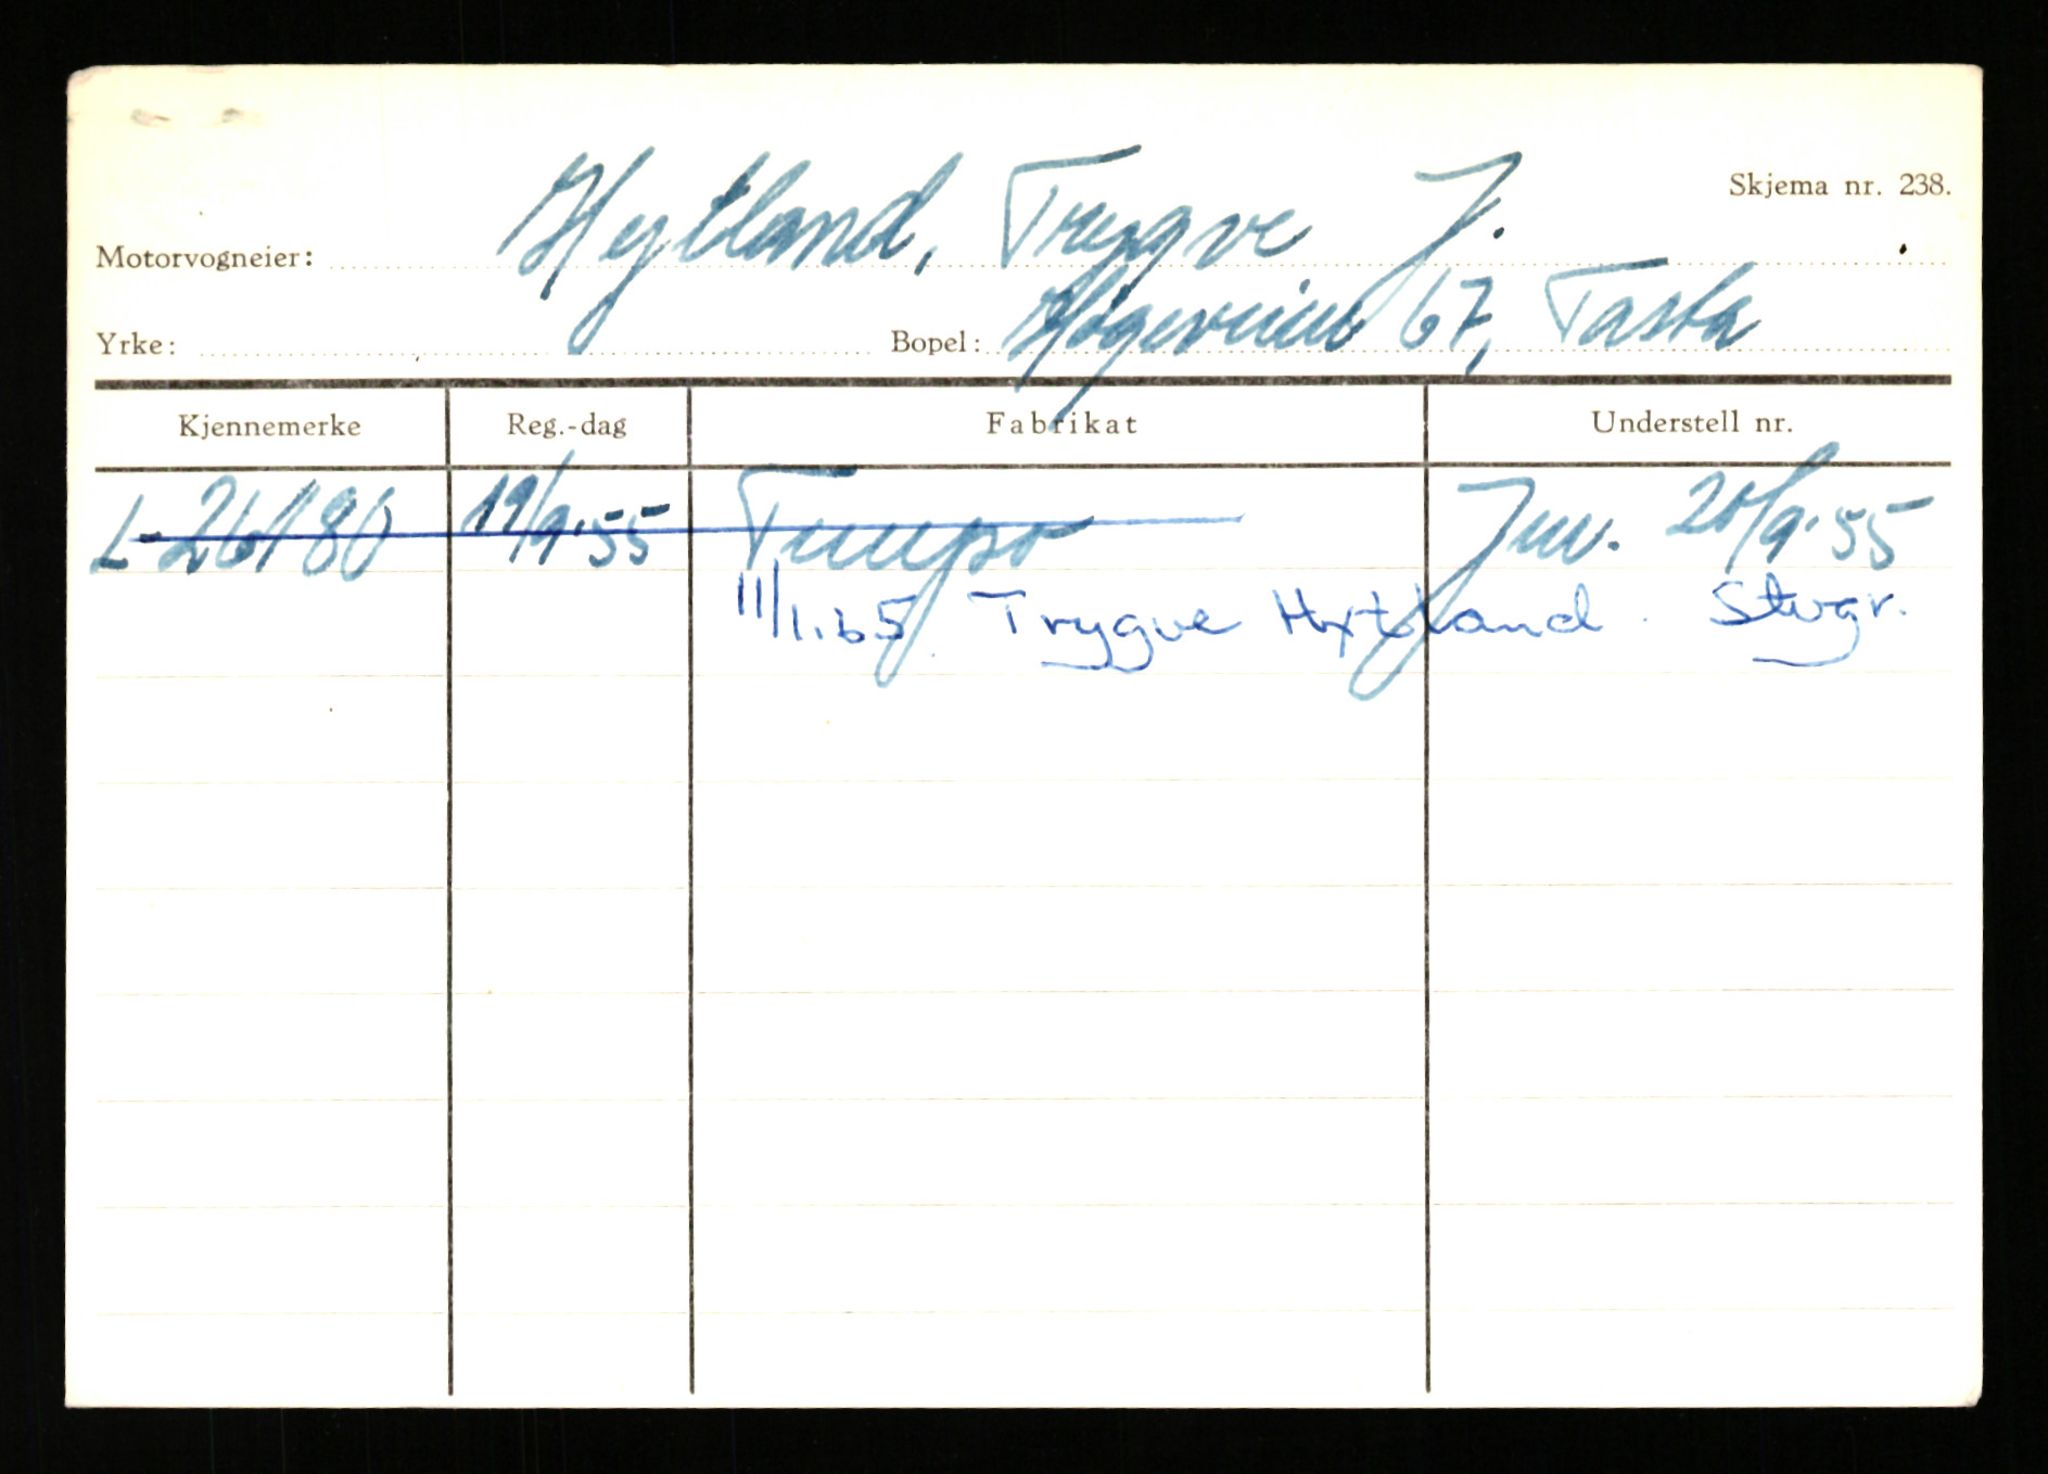 Skjema nr. 238.
Motorvogneier: Hytland, Trygve J.
Yrke: Bopel: 67, Tasta
Kjennemerke Reg.-dag Fabrikat Understell nr.
L-26180 19/9.55 Tempo Inv. 20/9.55
11/1.65 Trygve Hytland. Stvgr.